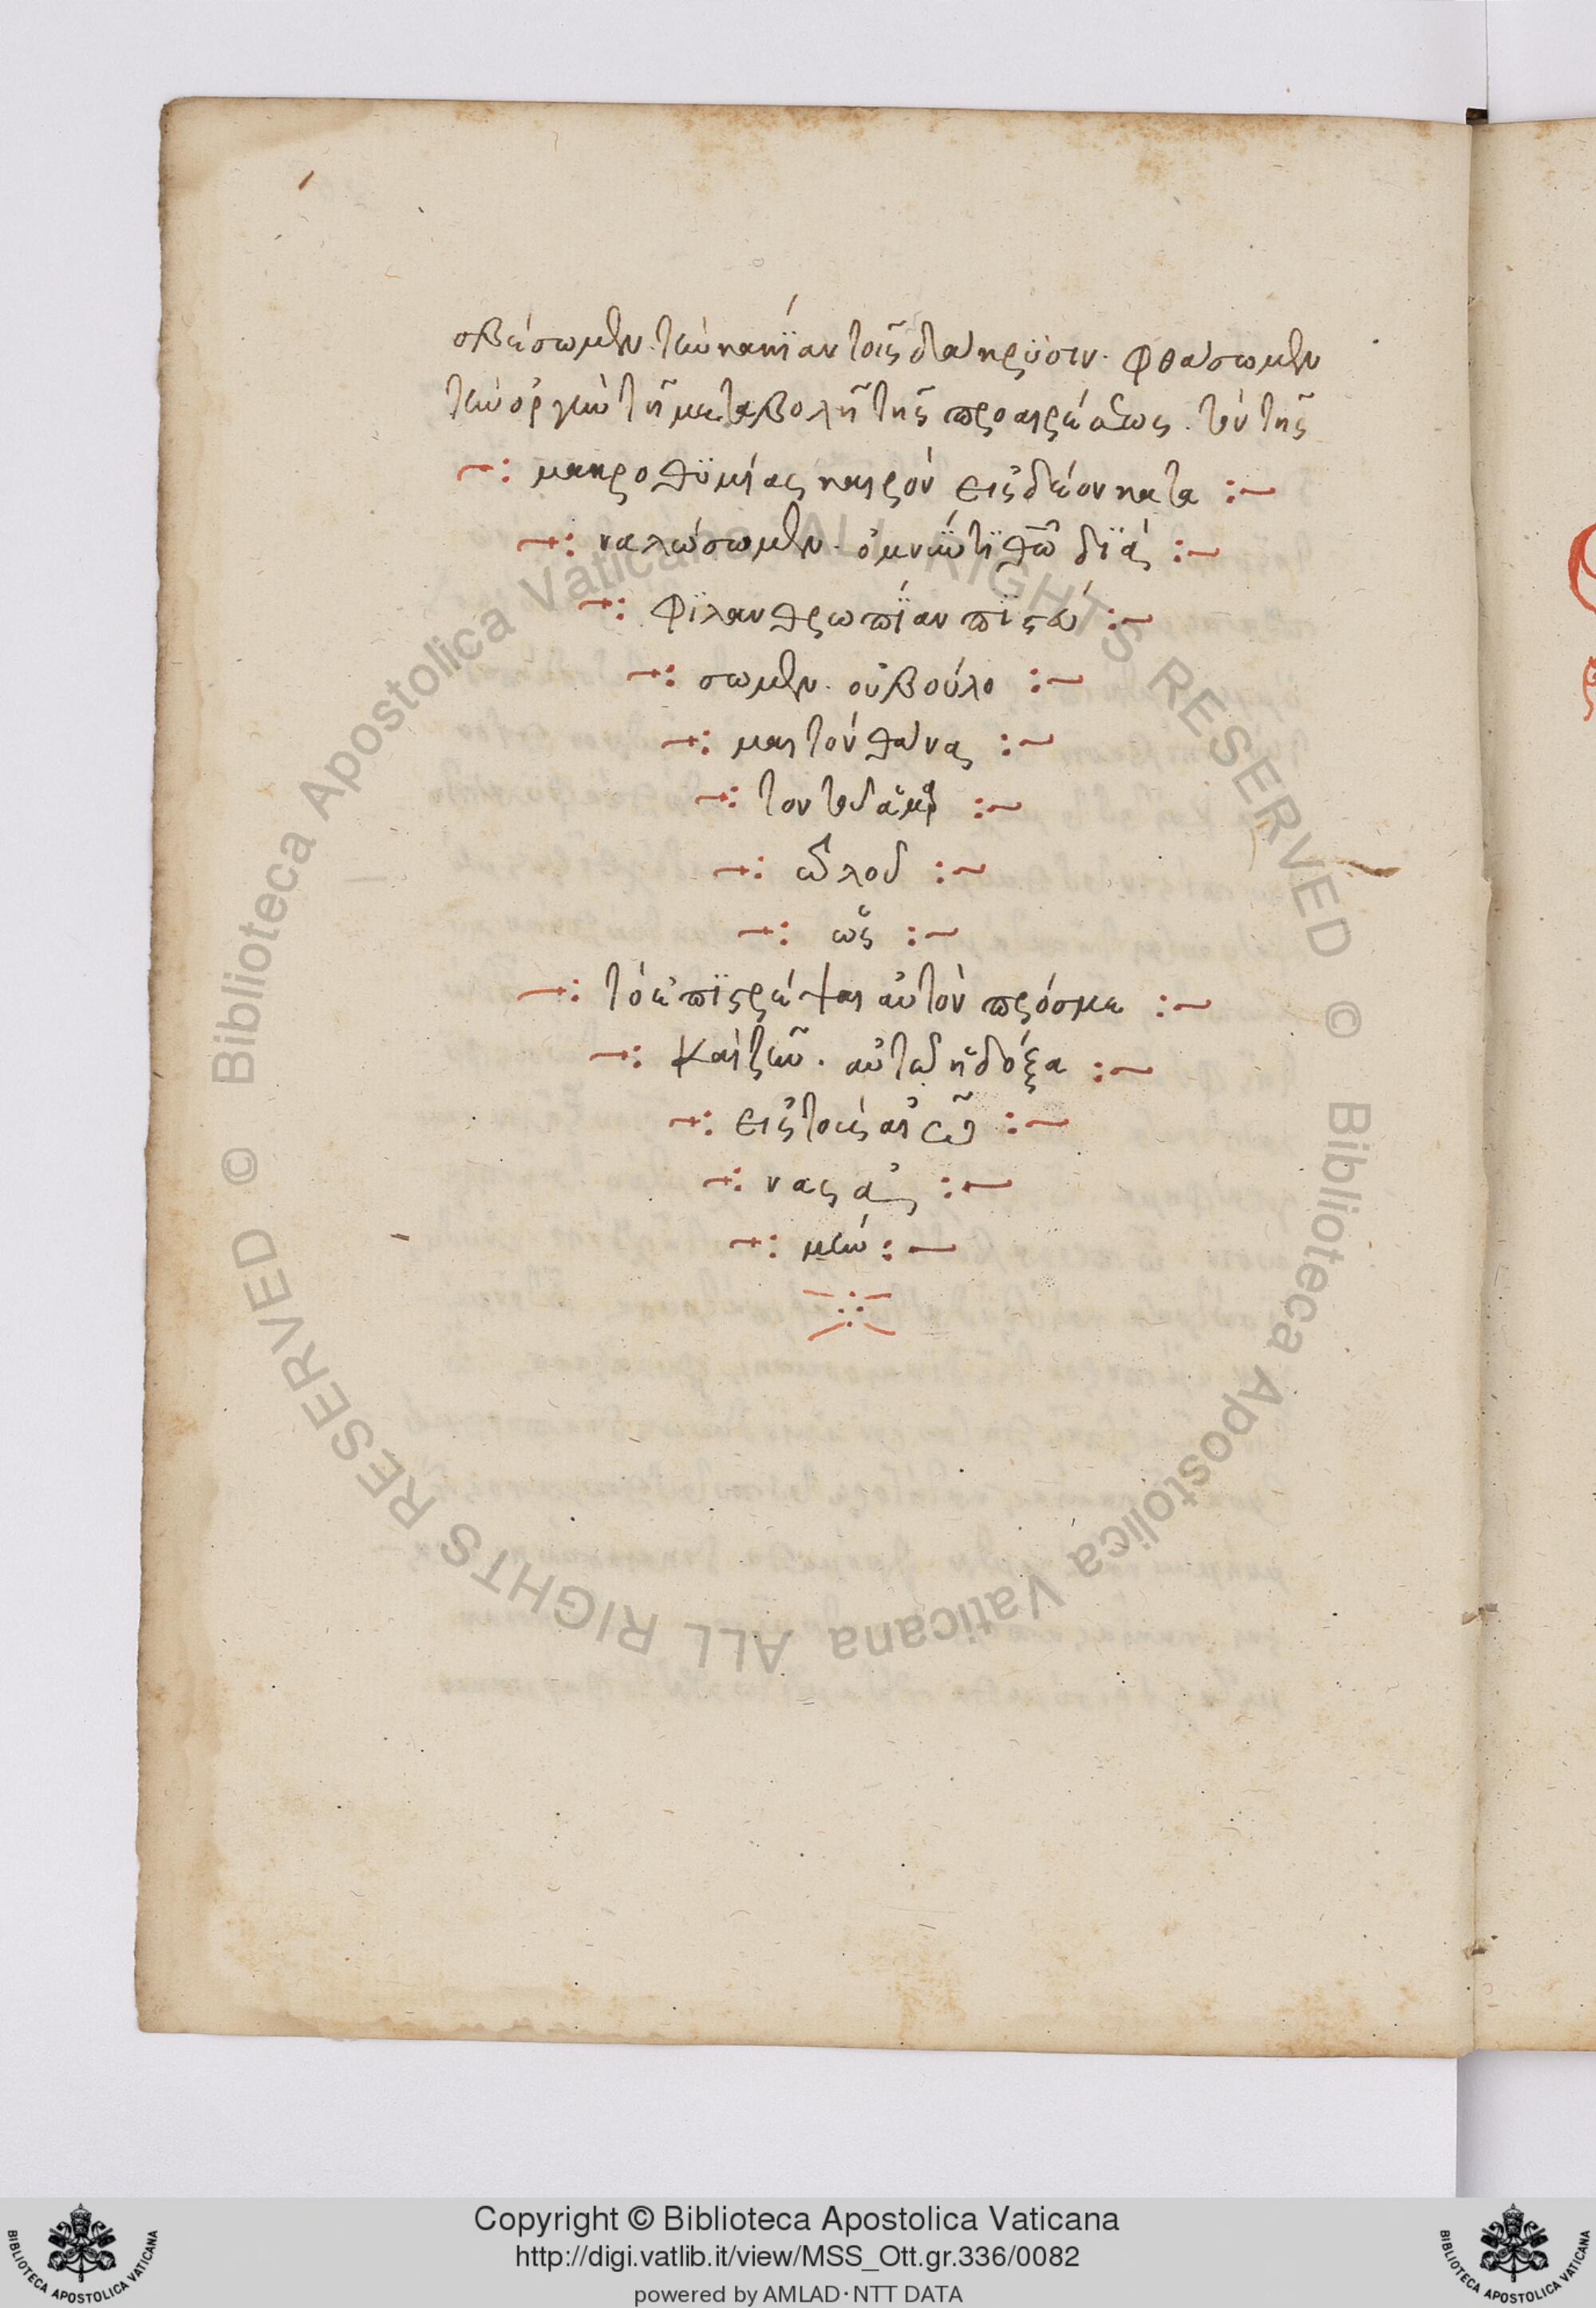 σβέσωμεν. τὴν κακΐαν τοῖς δάκρϋσιν. φθάσωμεν
τὴν ὀργὴν τῆ μεταβολῆ τῆς προαιρέσεως. τὸν τῆς
μακροθϋμίας καιρὸν εἰς δέον κατα
ναλώσωμεν. ὀμνύοντϊ θῶ δϊὰ
φϊλανθρωπΐαν πϊστεύ
σωμεν. οὐ βούλο
μαι τὸν θάνα
τον τοῦ ἁμαρ
τωλοῦ
ὡς
τὸ ἐπϊστρέψαι αὐτὸν πρόσ με
καὶ ζῆν. αὐτῶ ἡ δόξα
εἰς τοὺς αἰῶ
νας ἀ
μήν
Copyright © Biblioteca Apostolica Vaticana
http://digi.vatlib.it/view/MSS_Ott.gr.336/0082
powered by AMLAD·NTT DATA
© Biblioteca Apostolica Vaticana ALL RIGHTS RESERVED
© Biblioteca Apostolica Vaticana ALL RIGHTS RESERVED
BIBLIOTECA APOSTOLICA VATICANA
BIBLIOTECA APOSTOLICA VATICANA